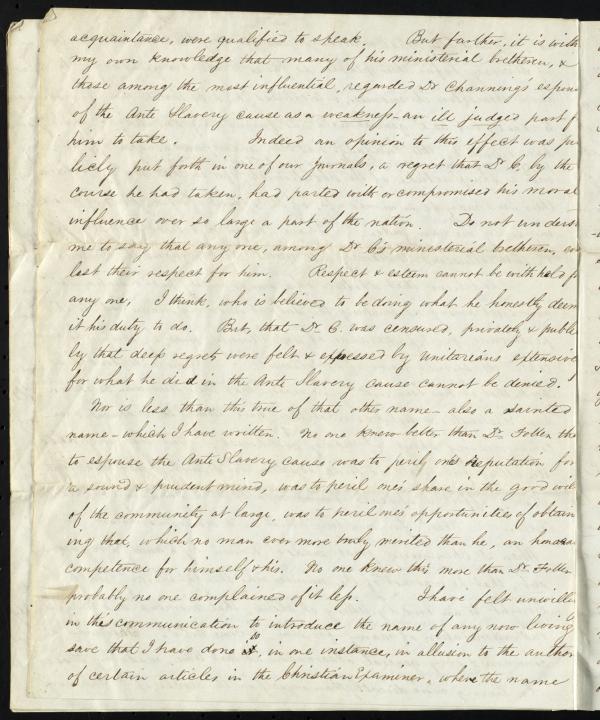 acquaintance, were qualified to speak. But further, it is with
my own knowledge that many of his ministerial bretheren, &
those among the most influential, regarded Dr Channing's espou
of the Anti Slavery cause as a weakness—an ill judged part f
him to take. Indeed an opinion to this effect was pu
licly put forth in one of our Journals, a regret that Dr C. by the
course he had taken, had parted with or compromised his moral
influence over so large a part of the nation. Do not unders
me to say that any one, among Dr C's ministerial bretheren, ev
lost their respect for him. Respect & esteem cannot be withheld f
any one, I think, who is believed to be doing what he honestly deem
it his duty to do. But, that Dr C. was censured, privately & publi
ly that deep regrets were felt & expressed by unitarians extensive
for what he did in the Anti Slavery cause cannot be denied.
Nor is less than this true of that other name—also a sainted
name—which I have written. No one knew better than Dr Follen tha
to espouse the Anti Slavery cause was to peril one's reputation for
a sound & prudent mind, was to peril one's share in the good wil
of the community at large, was to peril one's opportunities of obtain
ing that, which no man ever more truly merited than he, an honora
competence for himself & his. No one knew this more than Dr Follen
probably no one complained of it less. I have felt unwilli
in this communication to introduce the name of any now living
save that I have done so, in one instance, in allusion to the author
of certain articles in the Christian Examiner, where the name